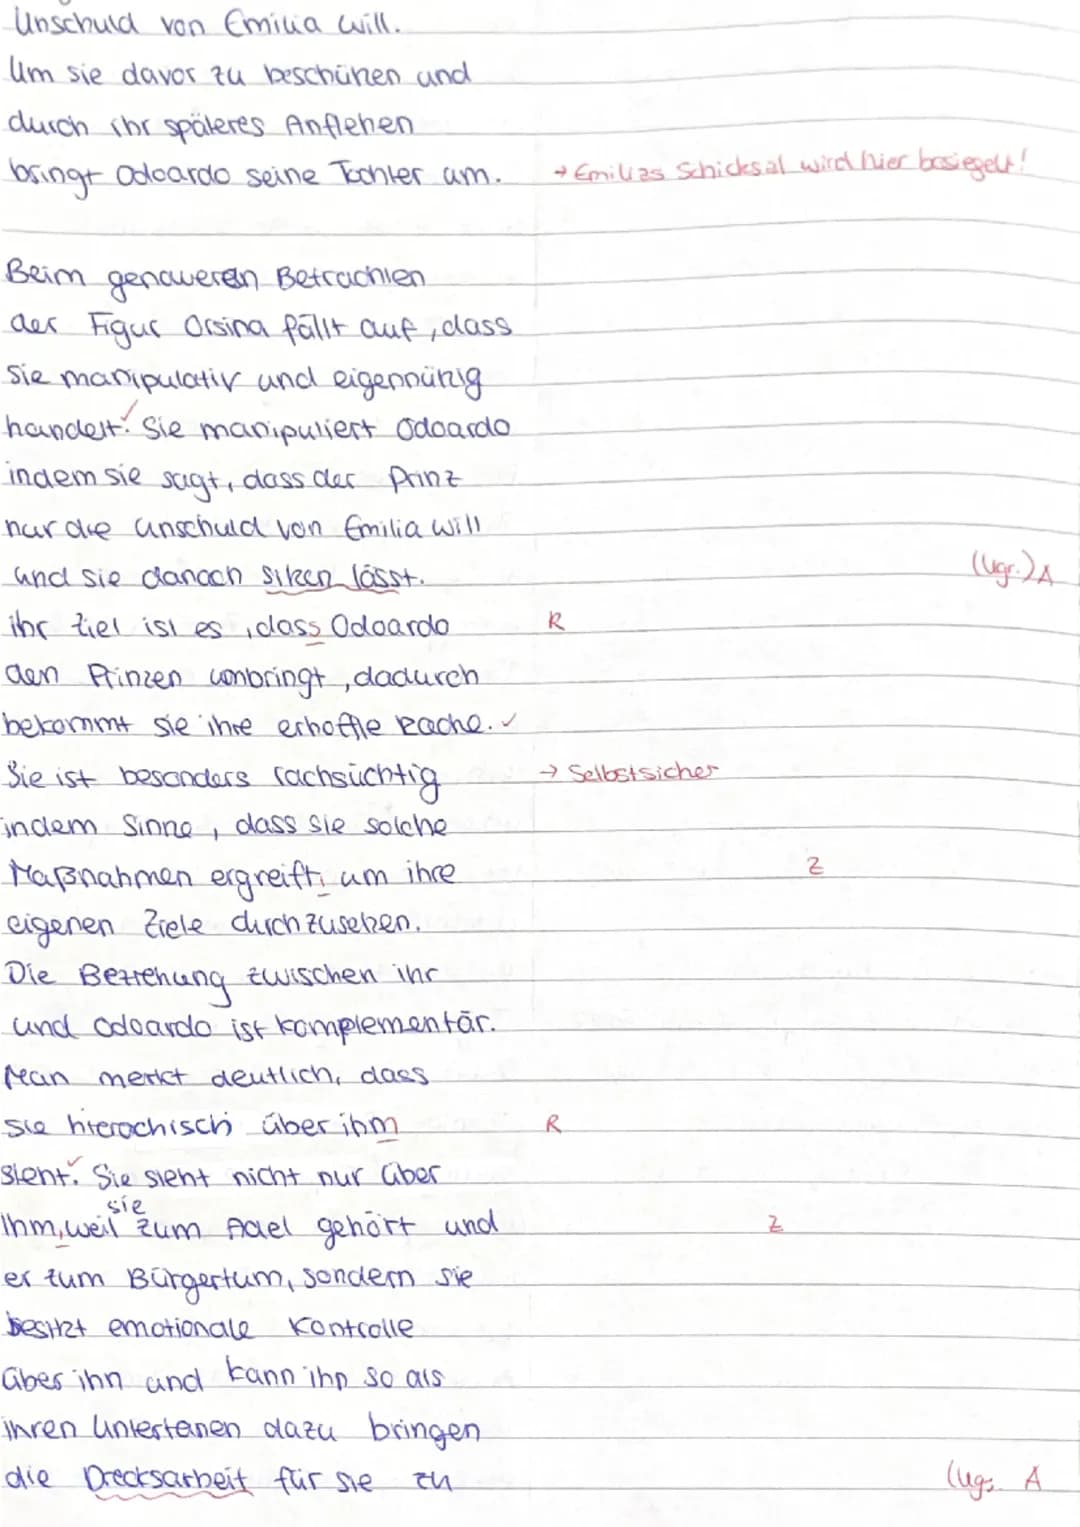 Unschuld von Emilia will.
Um sie davor zu beschützen und
durch ihr späteres Anflehen
bringt Odoardo seine Tochter um. → Emilias Schicksal wird hier besiegelt!
Beim genaueren Betrachten
der Figur Orsina fällt auf, dass
sie manipulativ und eigennützig
handelt. Sie manipuliert Odoardo
indem sie sagt, dass der Prinz
nur die Unschuld von Emilia will
und sie danach sitzen lässt. (Ugr.) A
ihr Ziel ist es, dass Odoardo R
den Prinzen umbringt, dadurch
bekommt sie ihre erhoffte Rache. ✓
Sie ist besonders rachsüchtig → Selbstsicher
indem Sinne, dass sie solche
Maßnahmen ergreift, um ihre Z
eigenen Ziele durchzusetzen.
Die Beziehung zwischen ihr
und Odoardo ist komplementär.
Man merkt deutlich, dass
sie hierochisch über ihm R
steht. Sie steht nicht nur über
Ihm, weil sie zum Adel gehört und Z
er zum Bürgertum, sondern sie
besitzt emotionale Kontrolle
über ihn und kann ihn so als
ihren Untertanen dazu bringen
die Drecksarbeit für sie zu (ugs. A